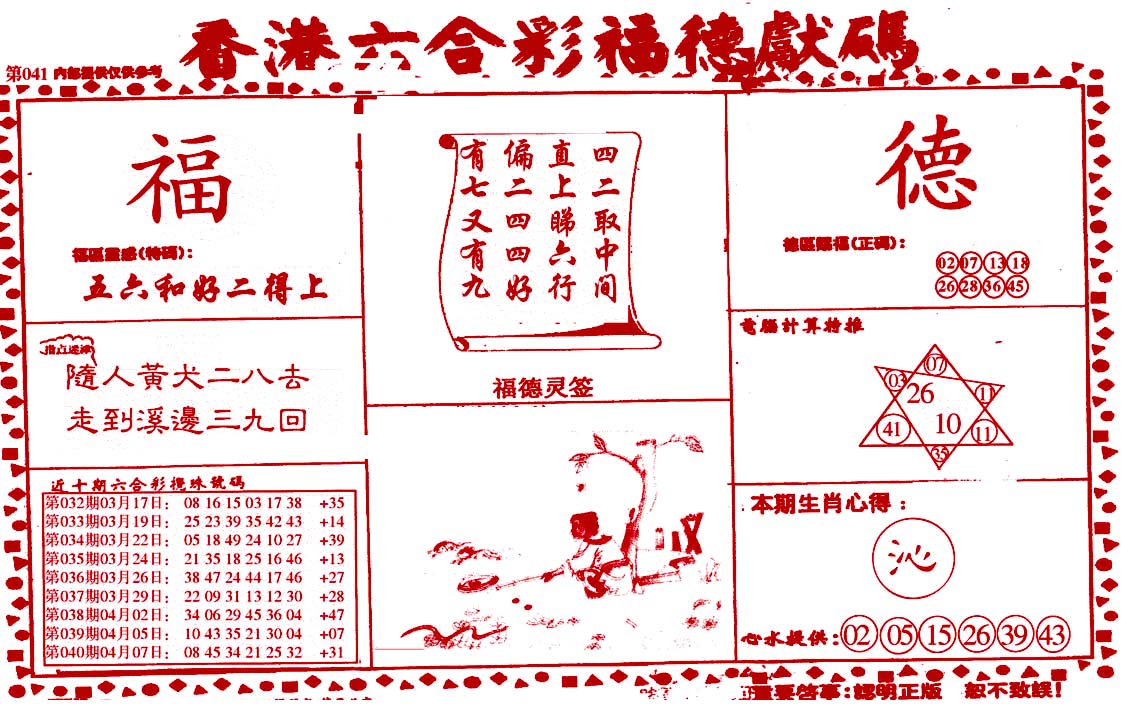 香港六合彩福德獻碼
第041 内部提供仅供参考
福
福區靈感(特碼)：
五六和好二得上
指点迷津
隨人黃犬二八去
走到溪邊三九回
近十期六合彩攪珠號碼
第032期03月17日： 08 16 15 03 17 38 +35
第033期03月19日： 25 23 39 35 42 43 +14
第034期03月22日： 05 18 49 24 10 27 +39
第035期03月24日： 21 35 18 25 16 46 +13
第036期03月26日： 38 47 24 44 17 46 +27
第037期03月29日： 22 09 31 13 12 30 +28
第038期04月02日： 34 06 29 45 36 04 +47
第039期04月05日： 10 43 35 21 30 04 +07
第040期04月07日： 08 45 34 21 25 32 +31
四二取中间
直上睇六行
偏二四四好
有七又有九
福德灵签
德
德區賜福(正碼)：
02 07 13 18
26 28 36 45
電腦計算特推
07
03 26 11
41 10 11
35
本期生肖心得：
沁
心水提供: 02 05 15 26 39 43
重要啓事:認明正版 恕不致誤!